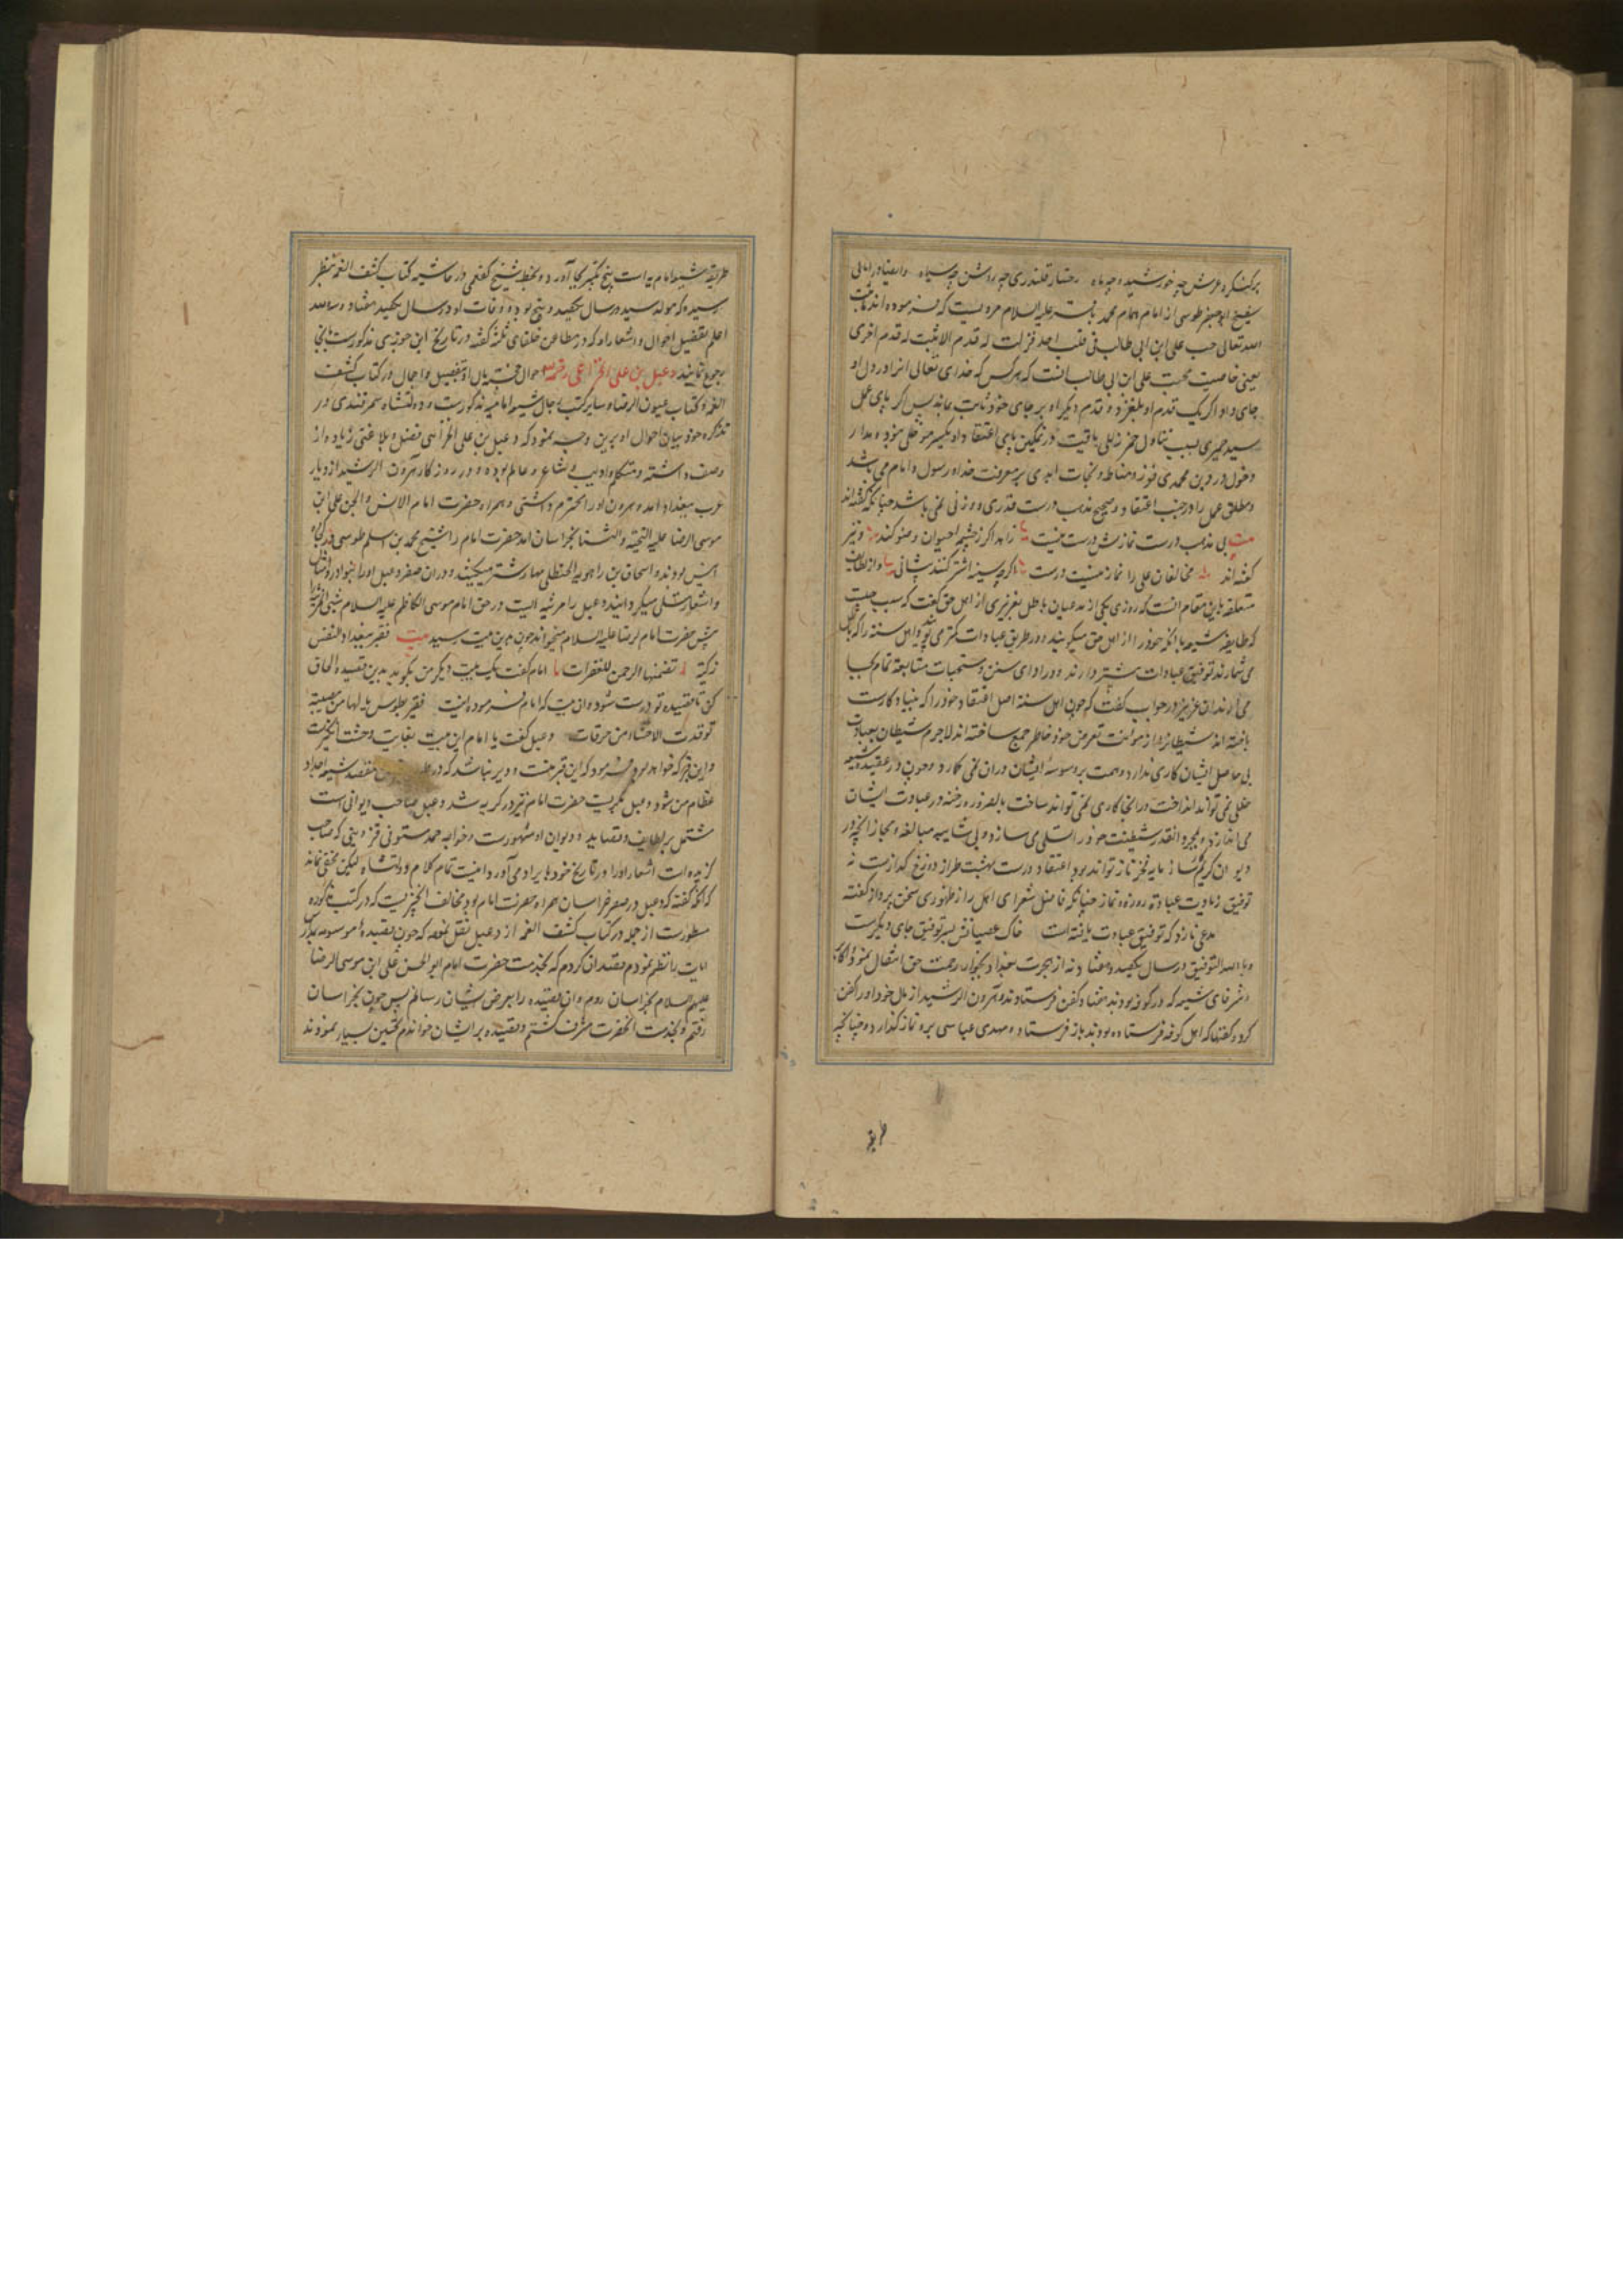 بر کنگره عرش چه خورشید و چه ماه رخسار قلندری چه روشن چه سیاه وایضا در امالی
شیخ ابوجعفر طوسی از امام همام محمد باقر علیه السلام مرویست که فرموده اند ما ثبت
الله تعالی حب علی ابن ابی طالب فی قلب احد فزلت له قدم الا ثبت له قدم اخری
یعنی خاصیت محبت علی ابن ابی طالب انست که هر کس که خدای تعالی انرا در دل او
جای داد اگر یک قدم او بلغزد قدم دیگر او بر جای خود ثابت بماند پس اگر پای عمل
سید حمیری بسبب تناول خمر زللی یافت در تمکین پای اعتقاد او یکسر مو خللی نبوده مدار
دخول در دین محمدی و فوز و مناط و نجات ابدی بر معرفت خدا و رسول و امام می باشد
و مطلق عمل را در جنب اعتقاد و صحیح مذهب درست قدری و وزنی نمی باشد چنانکه گفته اند
بیت بی مذهب درست نمازش درست نیست زاهد اگر ز چشمه حیوان وضو کند و نیز
گفته اند مخالفان علی را نماز نیست درست اگر چه سینه اشتر کنند پیشانی و از لطایف
متعلقه باین مقام انست که روزی یکی از مدعیان باطل بعزیزی از اهل حق گفت که سبب چیست
که طایفه شیعه با انکه خود را از اهل حق میگویند و در طریق عبادات کمتر می پویند و اهل سنة را که باطل
می شمارند توفیق عبادات بیشتر دارند و در ادای سنن و مستحبات متابعة تمام بجا
می آرند ان عزیز در جواب گفت که چون اهل سنة اصل اعتقاد خود را که بنیاد کارست
باخته اند شیطان را از مؤنت تعرض خود خاطر جمع ساخته اند لاجرم شیطان بعبادت
بی حاصل ایشان کاری ندارد و همت بر وسوسه ایشان دران نمی کمارد و چون در عقیده شیعه
خللی نمی تواند انداخت و در انجا کاری نمی تواند ساخت بالضروره رخنه در عبادت ایشان
می اندازد و بمجرد انقدر شیطنت خود را تسلی می سازد و بی شایبه مبالغه و مجاز انچه در
دیوان کریم کارساز مایه فخر و ناز تواند بود اعتقاد درست بهشت طراز دوزخ گدازست نه
توفیق زیادت عبادة روزه و نماز چنانکه فاضل شعرای اهل راز ظهوری سخن پرداز گفته
مدعی نازد که توفیق عبادت یافته است خاک عصیانش بسر توفیق جای دیگرست
و بالله التوفیق در سال یکصد و هفتاد و نه از هجرت ببغداد بجوار رحمت حق انتقال نمود و اکابر
و شرفای شیعه که در کوفه بودند هفتاد کفن فرستادند و هرون الرشید از مال خود او را کفن
کرد و کفنها که اهل کوفه فرستاده بودند باز فرستاد و مهدی عباسی برو نماز گذارده چنانچه
طریقه
طریقه شیعه امامیه است پنج تکبیر بجا آورد و بخط شیخ کفعمی در حاشیه کتاب کشف الغمه بنظر
رسیده که مولد سید در سال یکصد و پنج بوده و وفات او در سال یکصد هفتاد و سه والله
اعلم بتفصیل احوال و اشعار او که در مطاعن خلفای ثلثه گفته در تاریخ ابن جوزی مذکورست بانجا
رجوع نمایند دعبل بن علی الخزاعی رفع الله احوال خجسته مآل او بتفصیل و اجمال در کتاب کشف
الغمه و کتاب عیون الرضا و سایر کتب رجال شیعه امامیه مذکورست و دولتشاه سمرقندی در
تذکره خود بیان احوال او برین وجه نموده که دعبل بن علی الخزاعی فضل و بلاغتی زیاده از
وصف داشته و متکلم و ادیب و شاعر و عالم بوده و در روزگار هرون الرشید از دیار
عرب ببغداد امد و هرون او را محترم داشتی و همراه حضرت امام الانس و الجن علی ابن
موسی الرضا علیه التحیة والثنا بخراسان امد حضرت امام را شیخ محمد بن اسلم طوسی در کجاوه
انیس بودند و اسحاق بن راهویه الحنظلی مهار شتر میکشید و دران سفر دعبل او را بنوادر و امثال
و اشعار تسلی میگردانیده دعبل را مرثیه ایست در حق امام موسی الکاظم علیه السلام شبی ان مرثیه را
پیش حضرت امام الرضا علیه السلام میخواند چون بدین بیت رسید بیت فقبر ببغداد لنفس
زکیة تضمنها الرحمن للغفرات امام گفت یک بیت دیگر من بگوید بدین قصیده الحاق
کن تا قصیده تو درست شود و ان بیت که امام فرموده اینست فقبر بطوس یا لها من مصیبة
توقدت الاحشاء من حرقات دعبل گفت یا امام این بیت بغایت وحشت انگیزست
و این قبر که خواهد بود فرمود که این قبر منست و دیر نباشد که در طوس قبر من مقصد شیعه اجداد
عظام من شود دعبل بگریست حضرت امام نیز در گریه شد دعبل صاحب دیوانی است
مشتمل بر لطایف و قصاید و دیوان او مشهورست و خواجه حمد مستوفی قزوینی که صاحب
گزیده است اشعار او را در تاریخ خود بایراد می آورد اینست تمام کلام دولتشاه لیکن مخفی نماند
که انکه گفته که دعبل در سفر خراسان همراه حضرت امام بود مخالف انچیزیست که در کتب مذکوره
مسطورست از جمله در کتاب کشف الغمه از دعبل نقل نموده که چون قصیده موسومه بمدارس
ایات را نظم نمودم قصد ان کردم که بخدمت حضرت امام ابو الحسن علی ابن موسی الرضا
علیهم السلام بخراسان روم و ان قصیده را بعرض ایشان رسانم پس چون بخراسان
رفتم و بخدمت انحضرت مشرف گشتم و قصیده بر ایشان خواندم تحسین بسیار نمودند